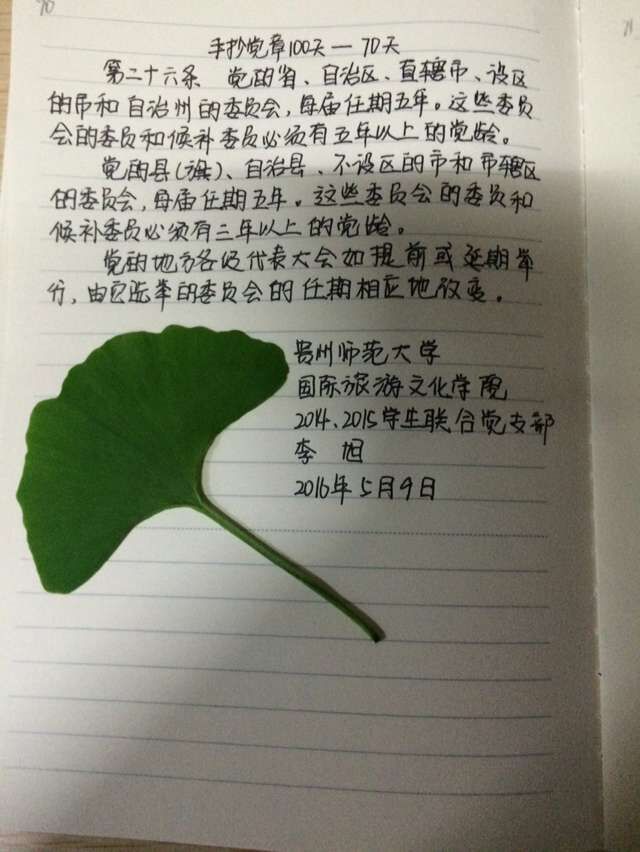 70
手抄党章100天—70天
第二十六条 党的省、自治区、直辖市、设区
的市和自治州的委员会,每届任期五年。这些委员
会的委员和候补委员必须有五年以上的党龄。
党的县(旗)、自治县、不设区的市和市辖区
的委员会,每届任期五年。这些委员会的委员和
候补委员必须有三年以上的党龄。
党的地方各级代表大会如提前或延期举
行,由它选举的委员会的任期相应地改变。
贵州师范大学
国际旅游文化学院
2014、2015学生联合党支部
李 旭
2016年5月9日